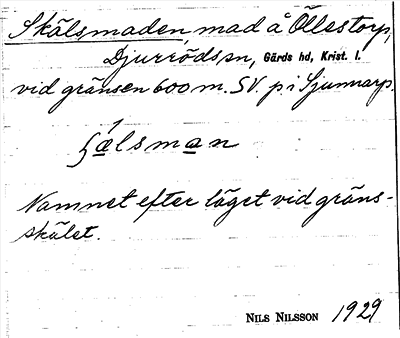 Skälsmaden, mad å Öllestorp,
Djurrödssn, Gärds hd, Krist. l.
vid gränsen 600 m. SV. p i Sjunnarp.
ʃä́lsman
Namnet efter läget vid gräns-
skälet.
NILS NILSSON 1929